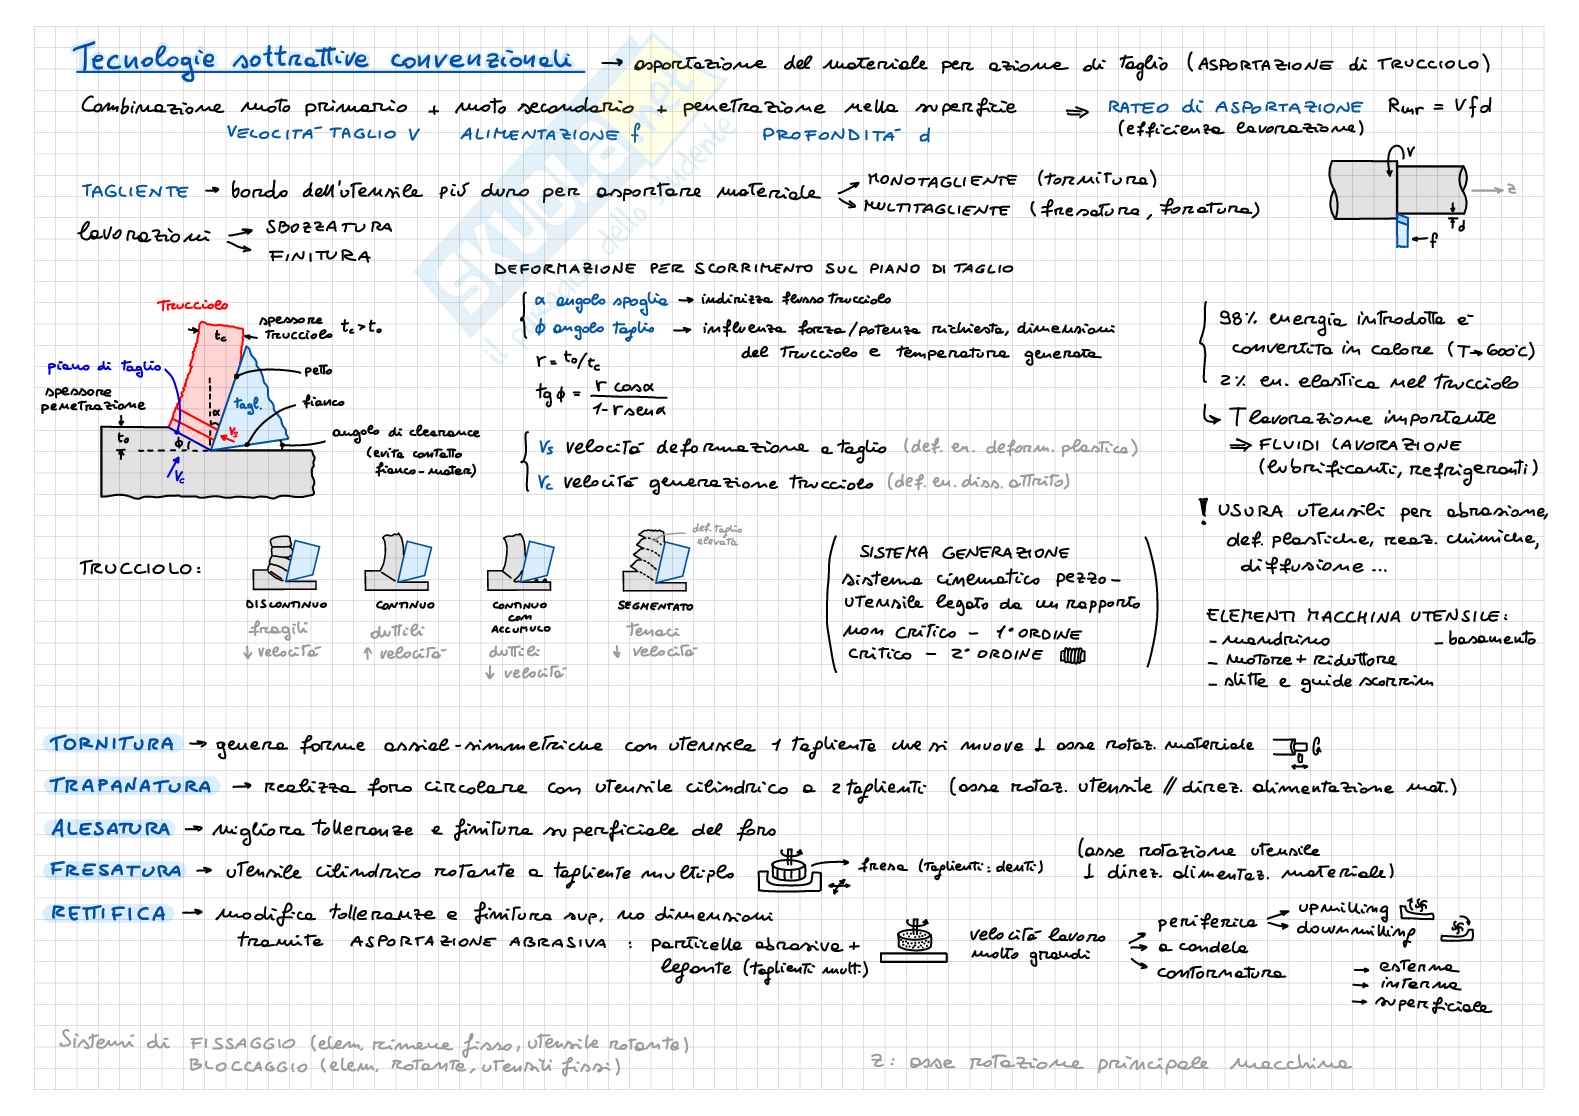 Tecnologie sottrattive convenzionali → asportazione del materiale per azione di taglio (ASPORTAZIONE di TRUCCIOLO)
Combinazione moto primario + moto secondario + penetrazione nella superficie ⇒ RATEO di ASPORTAZIONE Rmr = Vfd
VELOCITÀ TAGLIO V ALIMENTAZIONE f PROFONDITÀ d (efficienza lavorazione)
TAGLIENTE → bordo dell'utensile più duro per asportare materiale
→ MONOTAGLIENTE (tornitura)
→ MULTITAGLIENTE (fresatura, foratura)
V
z
d
f
lavorazioni
→ SBOZZATURA
→ FINITURA
SKUOLA.net
il portale dello studente
DEFORMAZIONE PER SCORRIMENTO SUL PIANO DI TAGLIO
Trucciolo
spessore trucciolo tc > to
tc
piano di taglio
petto
spessore penetrazione
tagl.
fianco
α
to
ϕ
Vs
Vc
angolo di clearance
(evita contatto
fianco-mater)
α angolo spoglia → indirizza flusso trucciolo
ϕ angolo taglio → influenza forza/potenza richiesta, dimensioni
del trucciolo e temperatura generata
r = to/tc
tg ϕ = r cosα / 1 - r senα
Vs velocità deformazione a taglio (def. en. deform. plastica)
Vc velocità generazione trucciolo (def. en. diss. attrito)
98% energia introdotta è
convertita in calore (T→600°C)
2% en. elastica nel trucciolo
↳ T lavorazione importante
⇒ FLUIDI LAVORAZIONE
(lubrificanti, refrigeranti)
! USURA utensili per abrasione,
def. plastiche, reaz. chimiche,
diffusione ...
TRUCCIOLO:
DISCONTINUO
fragili
↓ velocità
CONTINUO
duttili
↑ velocità
CONTINUO
con
ACCUMULO
duttili
↓ velocità
def. taglio
elevata
SEGMENTATO
tenaci
↓ velocità
SISTEMA GENERAZIONE
sistema cinematico pezzo-
utensile legato da un rapporto
non critico - 1° ORDINE
critico - 2° ORDINE
ELEMENTI MACCHINA UTENSILE:
- mandrino - basamento
- motore + riduttore
- slitte e guide scorrim
TORNITURA → genera forme assial-simmetriche con utensile 1 tagliente che si muove ⊥ asse rotaz. materiale
TRAPANATURA → realizza foro circolare con utensile cilindrico a 2 taglienti (asse rotaz. utensile // direz. alimentazione mat.)
ALESATURA → migliora tolleranze e finitura superficiale del foro
FRESATURA → utensile cilindrico rotante a tagliente multiplo → fresa (taglienti: denti)
(asse rotazione utensile
⊥ direz. alimentaz. materiale)
RETTIFICA → modifica tolleranze e finitura sup, no dimensioni
tramite ASPORTAZIONE ABRASIVA : particelle abrasive +
legante (taglienti mult.)
velocità lavoro
molto grandi
→ periferica
→ upmilling
→ downmilling
→ a candela
→ contornatura
→ esterna
→ interna
→ superficiale
Sistemi di FISSAGGIO (elem. rimane fisso, utensile rotante)
BLOCCAGGIO (elem. rotante, utensili fissi)
z: asse rotazione principale macchina